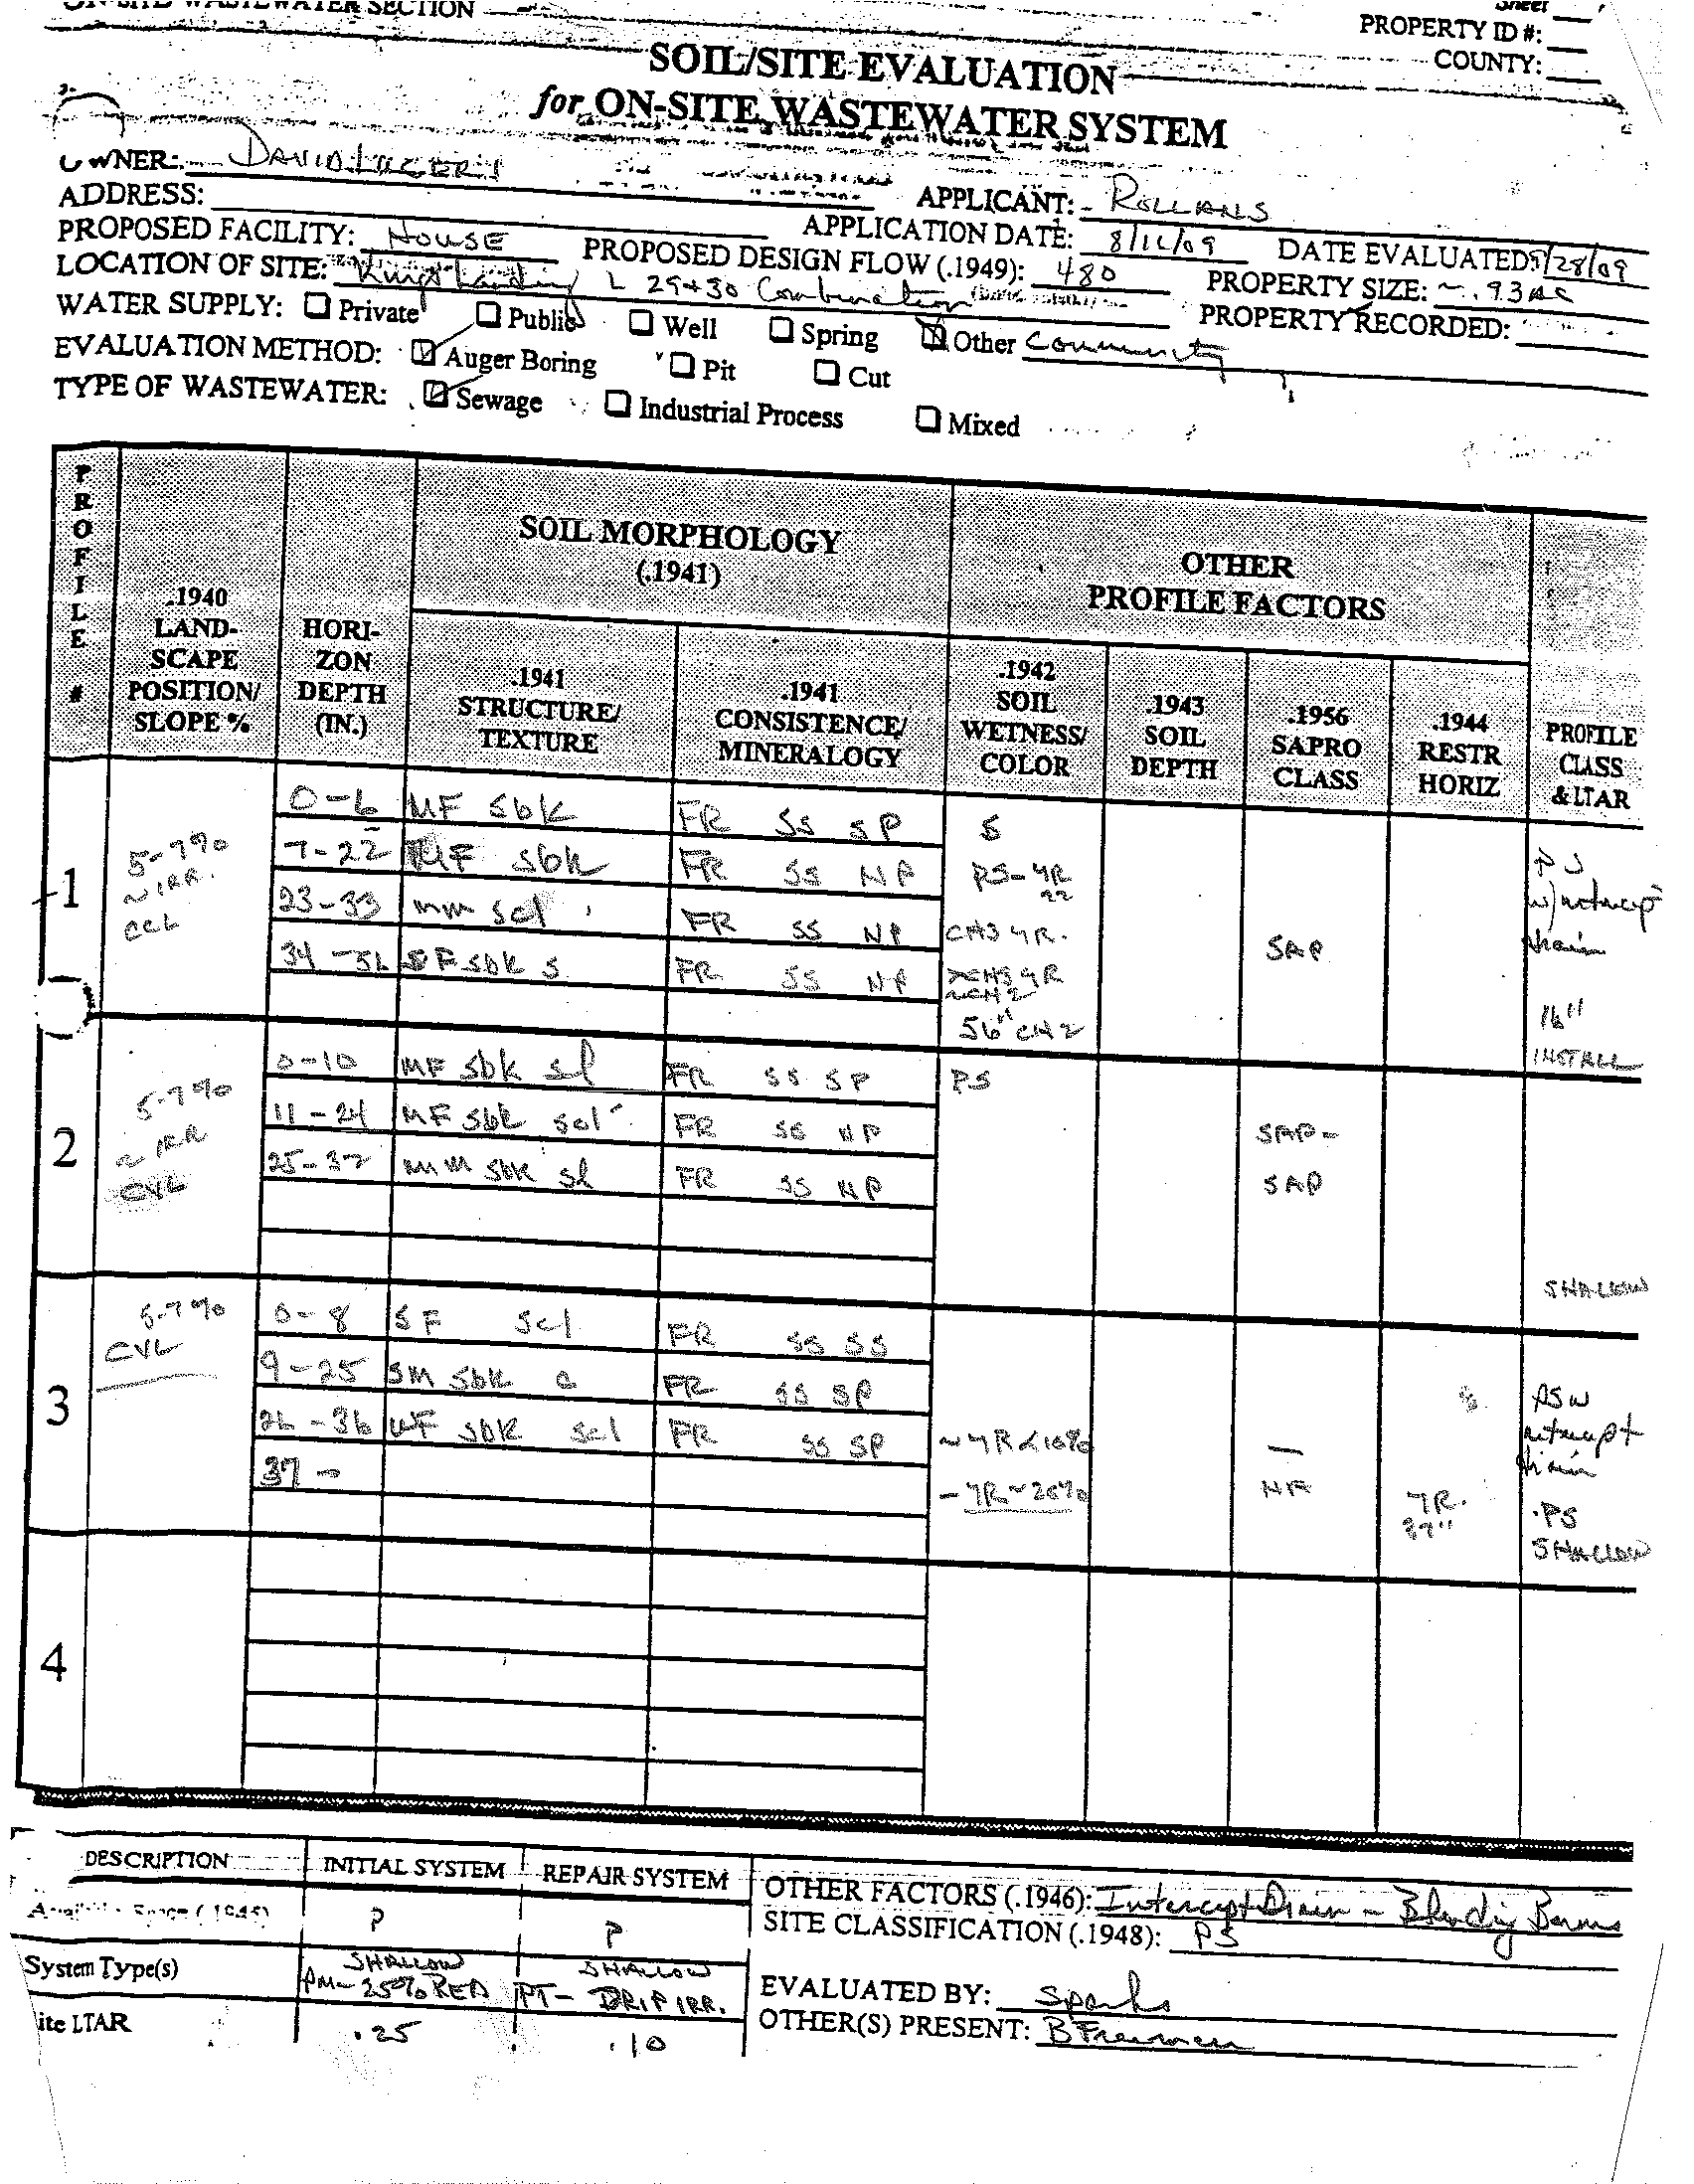 ON-SITE WASTEWATER SECTION
Sheet
PROPERTY ID #:
COUNTY:
SOIL/SITE EVALUATION
for ON-SITE WASTEWATER SYSTEM
OWNER: DAVID
APPLICANT: ROLLANS
ADDRESS:
APPLICATION DATE: 8/ /09 DATE EVALUATED: /28/09
PROPOSED FACILITY: HOUSE PROPOSED DESIGN FLOW (.1949): 480 PROPERTY SIZE: ~.93 AC
LOCATION OF SITE: Kings Landing L 29+30 Combination PROPERTY RECORDED:
WATER SUPPLY: Private Public Well Spring Other Community
EVALUATION METHOD: Auger Boring Pit Cut
TYPE OF WASTEWATER: Sewage Industrial Process Mixed
PROFILE #
.1940 LAND-SCAPE POSITION/ SLOPE %
HORI-ZON DEPTH (IN.)
SOIL MORPHOLOGY (.1941)
.1941 STRUCTURE/ TEXTURE
.1941 CONSISTENCE/ MINERALOGY
OTHER PROFILE FACTORS
.1942 SOIL WETNESS/ COLOR
.1943 SOIL DEPTH
.1956 SAPRO CLASS
.1944 RESTR HORIZ
PROFILE CLASS & LTAR
1
5-7%
~IRR.
CCL
0-6 MF sbk FR SS SP S
7-22 MF sbk FR SS NP PS-YR 22
23-33 mm scl FR SS NP CH3 YR.
34-56 SF sbk s FR SS NP CH3 YR ~CH2
56" CH2
SAP
PS
w/ intercept
drain
16"
INSTALL
2
5-7%
~IRR
CVL
0-10 MF sbk sl FR SS SP PS
11-24 MF sbk scl FR SS NP SAP-
25-37 MM sbk sl FR SS NP SAP
SHALLOW
3
5-7%
CVL
0-8 SF scl FR SS SS
9-25 SM sbk c FR SS SP
26-36 WF sbk scl FR SS SP ~YR<10% —
37- -YR~20% YR. 37"
PS w
intercept
drain
PS
SHALLOW
4
DESCRIPTION INITIAL SYSTEM REPAIR SYSTEM
Available Space (.1945) P P
System Type(s) SHALLOW PM-25% RED SHALLOW PT-DRIP IRR.
ite LTAR .25 .10
OTHER FACTORS (.1946): Intercept Drain - Berms
SITE CLASSIFICATION (.1948): PS
EVALUATED BY: Sparks
OTHER(S) PRESENT: B Freeman